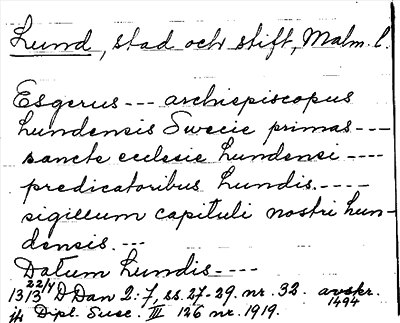 Lund, stad och stift, Malm. l.
Esgerus --- archiepiscopus
Lundensis Swecie primas ---
sancte ecclesie Lundensi ----
predicatoribus Lundis. ----
sigillum capituli nostri Lun-
densis. ---
Datum Lundis ----
1313 22/4 D Dan 2:7, ss. 27-29. nr. 32. avskr. 1494
jfr Dipl. Suec. III 126 nr. 1919.